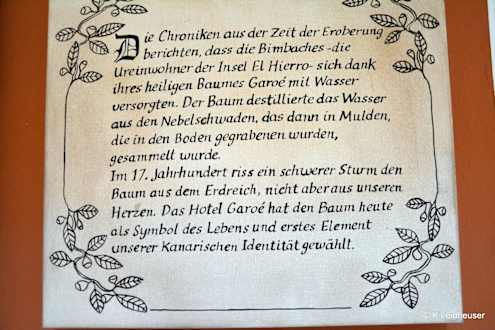 Die Chroniken aus der Zeit der Eroberung
berichten, dass die Bimbaches -die
Ureinwohner der Insel El Hierro- sich dank
ihres heiligen Baumes Garoé mit Wasser
versorgten. Der Baum destillierte das Wasser
aus den Nebelschwaden, das dann in Mulden,
die in den Boden gegrabenen wurden,
gesammelt wurde.
Im 17. Jahrhundert riss ein schwerer Sturm den
Baum aus dem Erdreich, nicht aber aus unseren
Herzen. Das Hotel Garoé hat den Baum heute
als Symbol des Lebens und erstes Element
unserer Kanarischen Identität gewählt.
© K